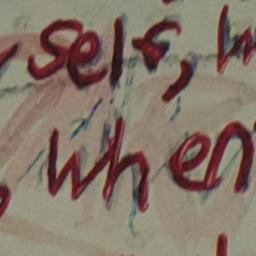 self,
, when